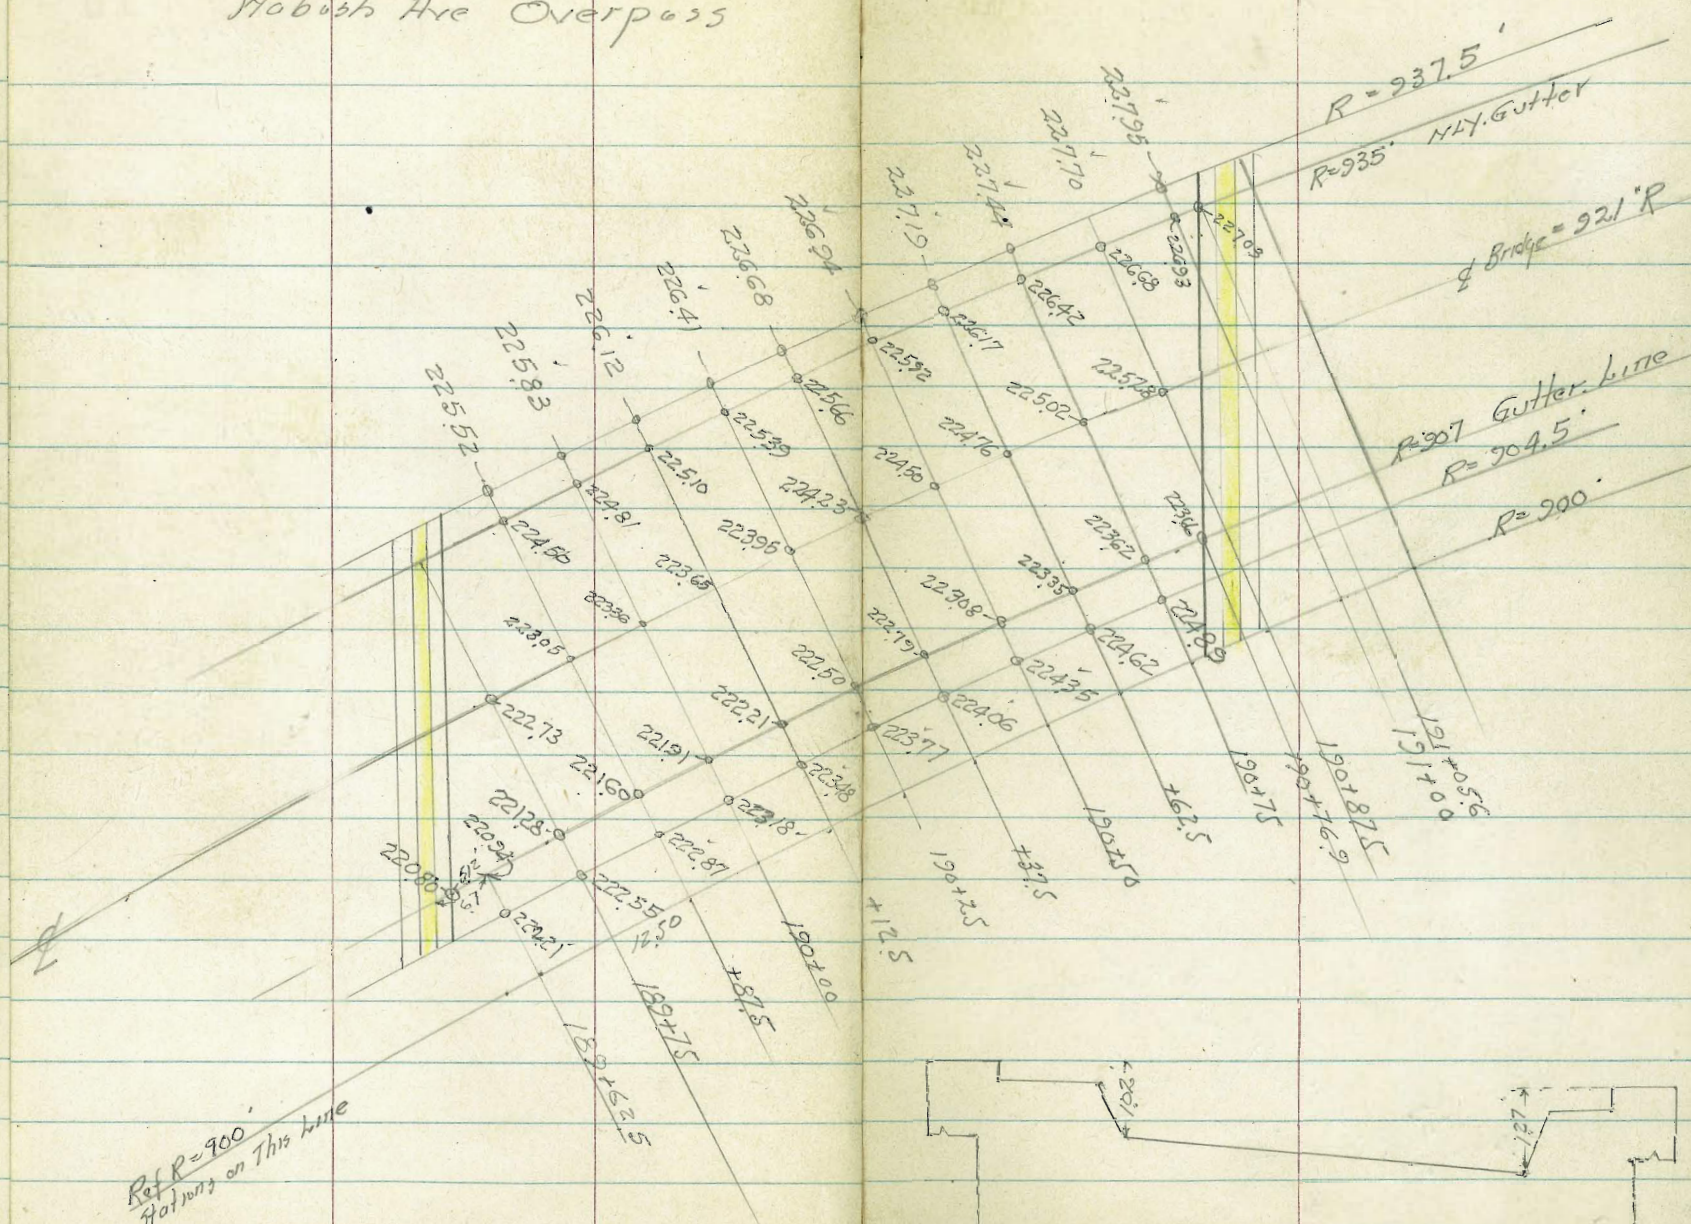 Wabash Ave Overpass
R = 937.5'
N'LY. Gutter
R=935'
℄ Bridge = 921' R
Gutter Line
R=907
R= 904.5'
R= 900'
227.95
227.70
227.44
227.19
226.94
226.68
226.41
226.12
225.83
225.52
227.09
226.93
226.68
226.42
226.17
225.92
225.66
225.39
225.10
224.81
224.50
225.28
225.02
224.76
224.50
224.23
223.95
223.65
223.36
223.05
222.73
223.62
223.35
223.08
222.79
222.50
222.21
221.91
221.60
221.28
220.80
224.89
224.62
224.35
224.06
223.77
223.48
223.18
222.87
222.55
222.21
12.50
191+05.6
191+00
190+87.5
190+76.9
190+75
+62.5
190+50
+37.5
190+25
+12.5
190+00
+87.5
189+75
189+62.5
℄
Ref R=900'
Stations on This Line
1.20'
1.27'